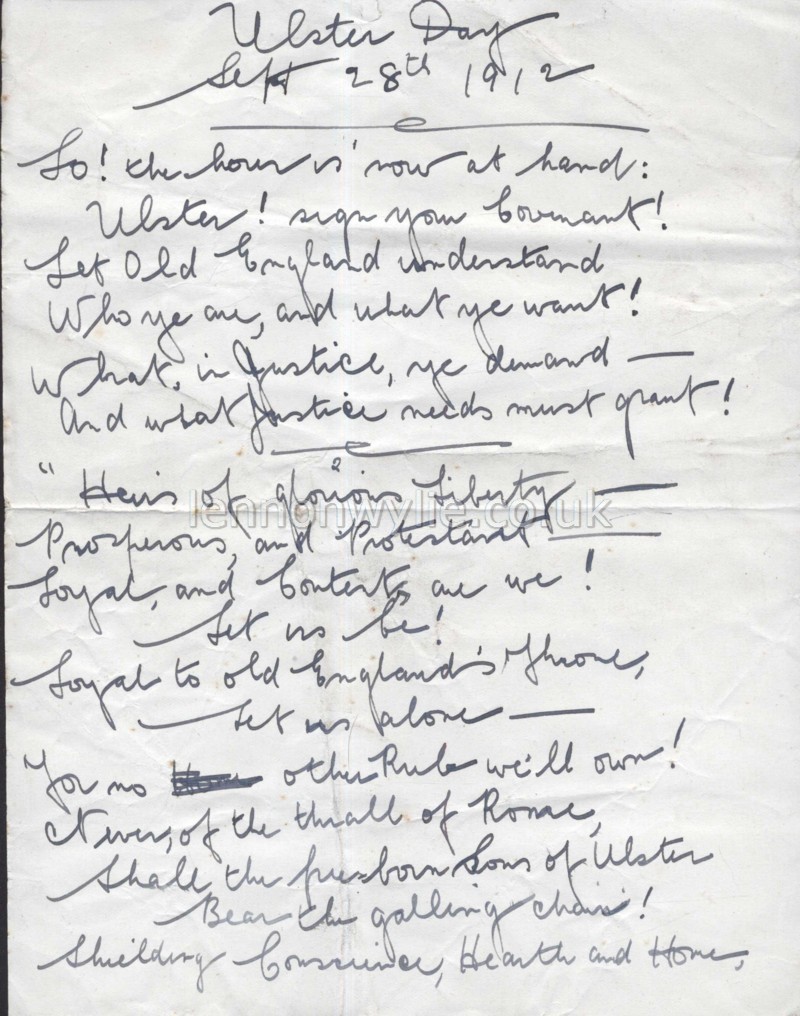 Ulster Day
Sept 28th 1912
Lo! the hour is now at hand:
Ulster! sign your Covenant!
Let Old England understand
Who ye are, and what ye want!
What, in Justice, ye demand —
And what Justice needs must grant!
" Heirs of glorious Liberty —
lennonwylie.co.uk
Prosperous, and Protestant —
Loyal, and Content, are we!
Let us be!
Loyal to old England's Throne,
Let us alone —
For no other Rule we'll own!
Never, of the thrall of Rome,
Shall the free-born Sons of Ulster
Bear the galling chain!
Shielding Conscience, Hearth and Home,